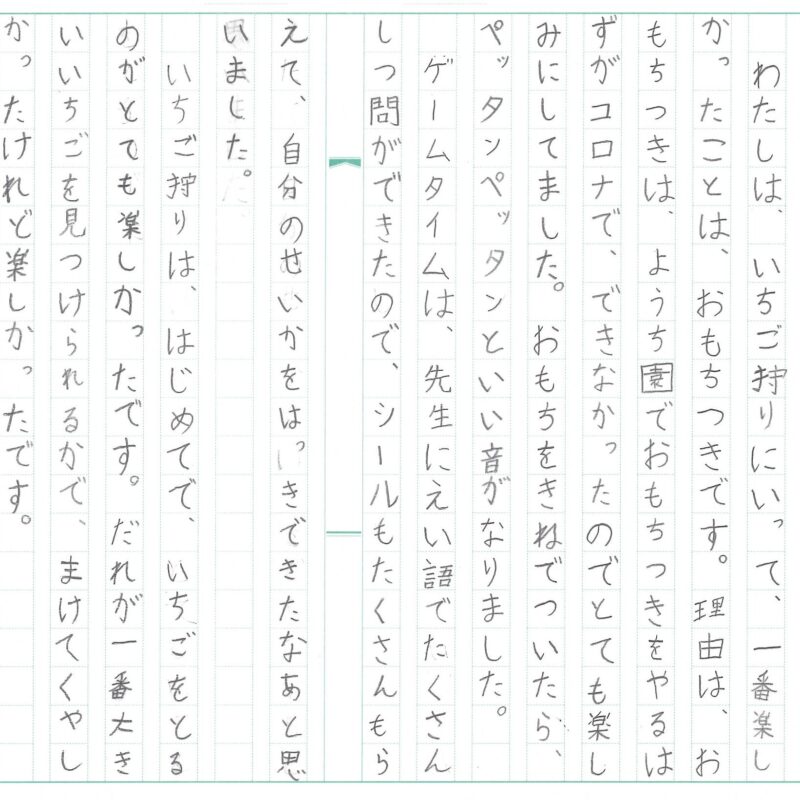 わたしは、いちご狩りにいって、一番楽し
かったことは、おもちつきです。理由は、お
もちつきは、ようち園でおもちつきをやるは
ずがコロナで、できなかったのでとても楽し
みにしてました。おもちをきねでついたら、
ペッタンペッタンといい音がなりました。
ゲームタイムは、先生にえい語でたくさん
しつ問ができたので、シールもたくさんもら
えて、自分のせいかをはっきできたなあと思
いました。
いちご狩りは、はじめてで、いちごをとる
のがとても楽しかったです。だれが一番大き
いいちごを見つけられるかで、まけてくやし
かったけれど楽しかったです。